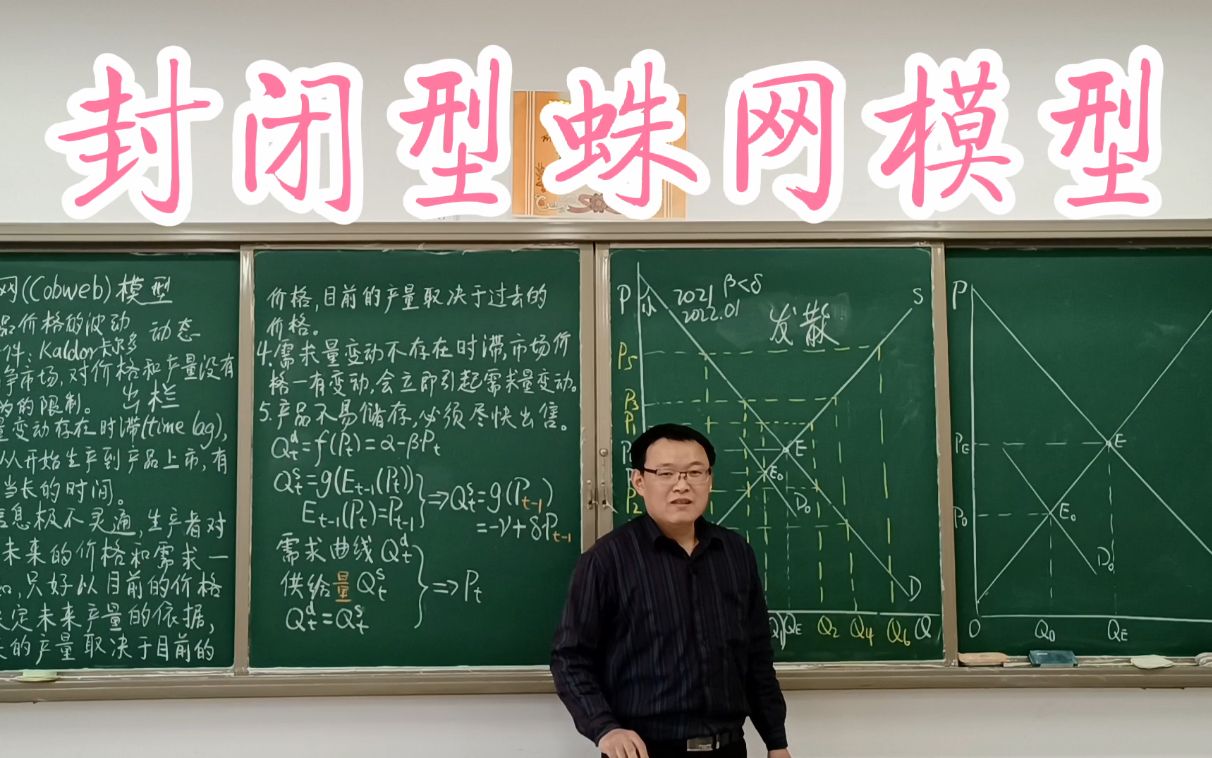 封闭型蛛网模型
网(Cobweb)模型
品价格的波动
动态
件:Kaldor卡尔多
争市场,对价格和产量没有
为的限制。 出栏
量变动存在时滞(time lag),
从开始生产到产品上市,有
当长的时间。
信息极不灵通,生产者对
未来的价格和需求一
知,只好以目前的价格
决定未来产量的依据,
的产量取决于目前的
价格,目前的产量取决于过去的
价格。
4.需求量变动不存在时滞,市场价
格一有变动,会立即引起需求量变动。
5.产品不易储存,必须尽快出售。
Qᵈₜ=f(Pₜ)=α-βPₜ
Qˢₜ=g(Eₜ₋₁(Pₜ))
Eₜ₋₁(Pₜ)=Pₜ₋₁
⇒Qˢₜ=g(Pₜ₋₁)
=-γ+δPₜ₋₁
需求曲线Qᵈₜ
供给量Qˢₜ
Qᵈₜ=Qˢₜ
⇒Pₜ
P
小
2021
2022.01
β<δ
发散
S
P₅
P₃
P₁
P₂
E
E₀
D₀
D
Q₁
Q_E
Q₂
Q₄
Q₆
Q
P
P_E
E
P₀
E₀
D₀
O
Q₀
Q_E